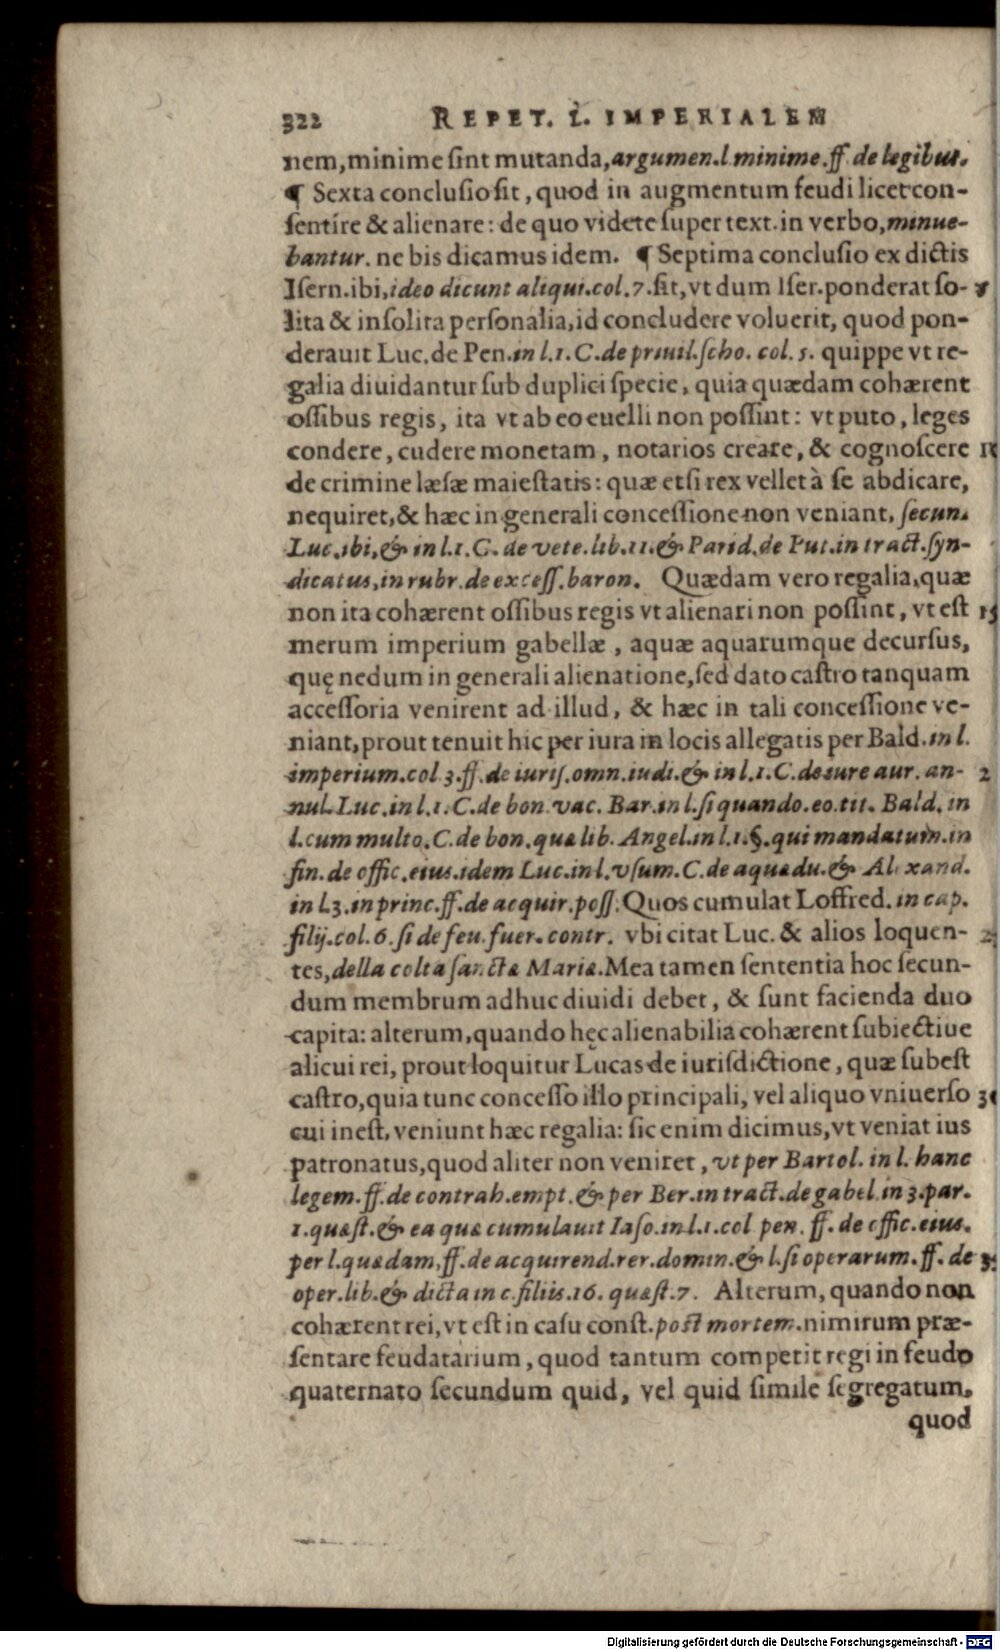 322 REPET. L. IMPERIALEM
nem, minime sint mutanda, argumen. l. minime. ff. de legibus.
¶ Sexta conclusio sit, quod in augmentum feudi licet con-
sentire & alienare: de quo videte super text. in verbo, minue-
bantur. ne bis dicamus idem. ¶ Septima conclusio ex dictis
Isern. ibi, ideo dicunt aliqui. col. 7. sit, vt dum Iser. ponderat so-
lita & insolita personalia, id concludere voluerit, quod pon-
derauit Luc. de Pen. in l. 1. C. de priuil. scho. col. 5. quippe vt re-
galia diuidantur sub duplici specie, quia quædam cohærent
ossibus regis, ita vt ab eo euelli non possint: vt puto, leges
condere, cudere monetam, notarios creare, & cognoscere
de crimine læsæ maiestatis: quæ etsi rex vellet à se abdicare,
nequiret, & hæc in generali concessione non veniant. secun.
Luc. ibi, & in l. 1. C. de vete. lib. 11. & Parid. de Put. in tract. syn-
dicatus, in rubr. de excess. baron. Quædam vero regalia, quæ
non ita cohærent ossibus regis vt alienari non possint, vt est 15
merum imperium gabellæ, aquæ aquarumque decursus,
quę nedum in generali alienatione, sed dato castro tanquam
accessoria venirent ad illud, & hæc in tali concessione ve-
niant, prout tenuit hic per iura in locis allegatis per Bald. in l.
imperium. col. 3. ff. de iuris. omn. iudi. & in l. 1. C. de iure aur. an- 2
nul. Luc. in l. 1. C. de bon. vac. Bar. in l. si quando. eo. tit. Bald. in
l. cum multo. C. de bon. quæ lib. Angel. in l. 1. §. qui mandatum. in
fin. de offic. eius. idem Luc. in l. vsum. C. de aquædu. & Al xand.
in l. 3. in princ. ff. de acquir. poss. Quos cumulat Loffred. in cap.
filij. col. 6. si de feu. fuer. contr. vbi citat Luc. & alios loquen- 2
tes, della colta sanctæ Mariæ. Mea tamen sententia hoc secun-
dum membrum adhuc diuidi debet, & sunt facienda duo
capita: alterum, quando hęc alienabilia cohærent subiectiue
alicui rei, prout loquitur Lucas de iurisdictione, quæ subest
castro, quia tunc concesso illo principali, vel aliquo vniuerso 3
cui inest, veniunt hæc regalia: sic enim dicimus, vt veniat ius
patronatus, quod aliter non veniret, vt per Bartol. in l. hanc
legem. ff. de contrah. empt. & per Ber. in tract. de gabel. in 3. par.
1. quæst. & ea quæ cumulauit Iaso. in l. 1. col pen. ff. de offic. eius.
per l. quædam, ff. de acquirend. rer. domin. & l. si operarum. ff. de 3
oper. lib. & dicta in c. filiis. 16. quæst. 7. Alterum, quando non
cohærent rei, vt est in casu const. post mortem. nimirum præ-
sentare feudatarium, quod tantum competit regi in feudo
quaternato secundum quid, vel quid simile segregatum,
quod
Digitalisierung gefördert durch die Deutsche Forschungsgemeinschaft - DFG